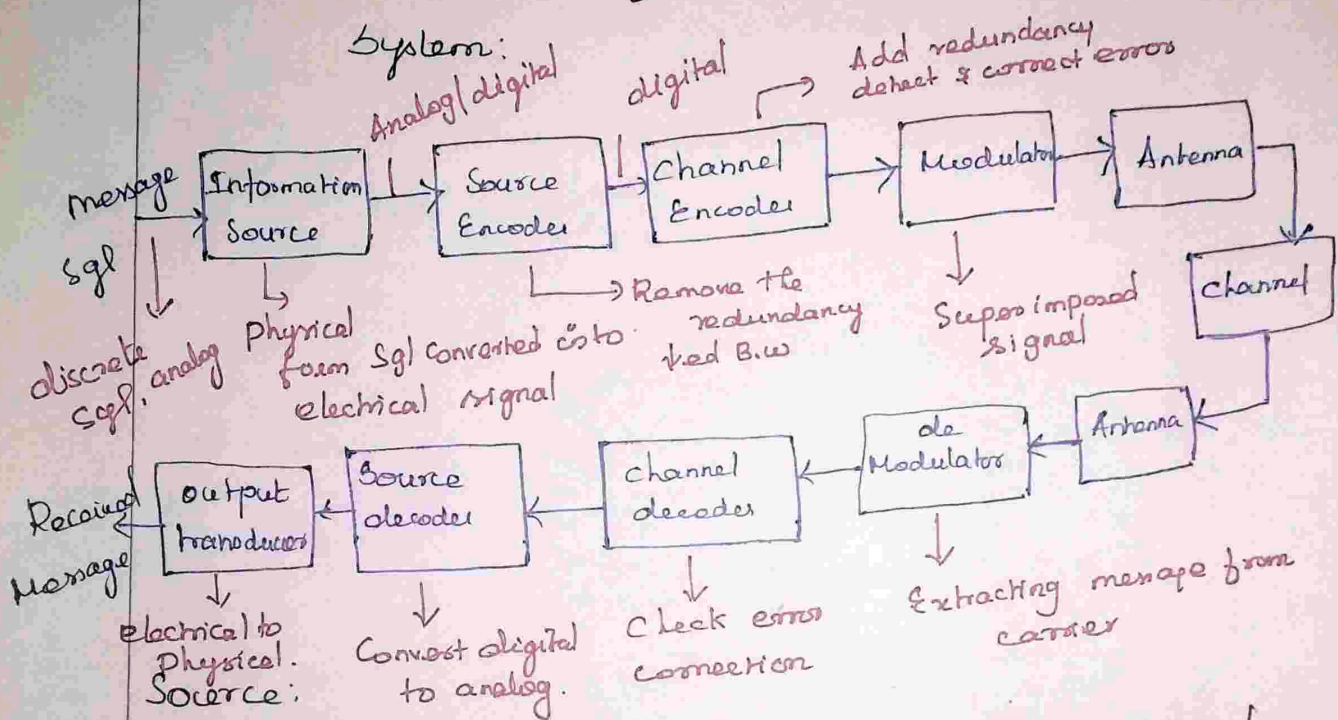 System:
Analog/digital
digital
Add redundancy
detect & correct error
message
sgl
Information
Source
Source
Encoder
Channel
Encoder
Modulator
Antenna
Channel
discrete
sgl, analog
Physical
form Sgl converted into
electrical signal
Remove the
redundancy
↓ed B.w
Superimposed
signal
Antenna
de
Modulator
channel
decoder
Source
decoder
output
transducer
Received
Message
electrical to
Physical.
Source:
Convert digital
to analog.
Check error
correction
Extracting message from
carrier